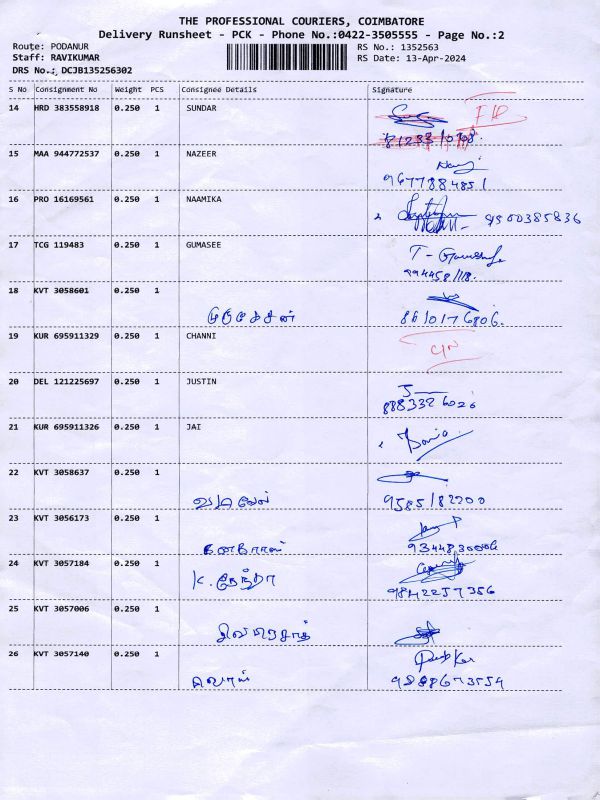 THE PROFESSIONAL COURIERS, COIMBATORE
Delivery Runsheet - PCK - Phone No.:0422-3505555 - Page No.:2
Route: PODANUR
RS No.: 1352563
Staff: RAVIKUMAR
RS Date: 13-Apr-2024
DRS No.: DCJB135256302
S No Consignment No Weight PCS Consignee Details Signature
14 HRD 383558918 0.250 1 SUNDAR
15 MAA 944772537 0.250 1 NAZEER
9677884851
16 PRO 16169561 0.250 1 NAAMIKA
9500385836
17 TCG 119483 0.250 1 GUMASEE
18 KVT 3058601 0.250 1
முருகேசன் 8610176806.
19 KUR 695911329 0.250 1 CHANNI
20 DEL 121225697 0.250 1 JUSTIN
8883326026
21 KUR 695911326 0.250 1 JAI
22 KVT 3058637 0.250 1
வடிவேல் 9585182200
23 KVT 3056173 0.250 1
9344830006
24 KVT 3057184 0.250 1
9842257356
25 KVT 3057006 0.250 1
26 KVT 3057140 0.250 1
9888673554